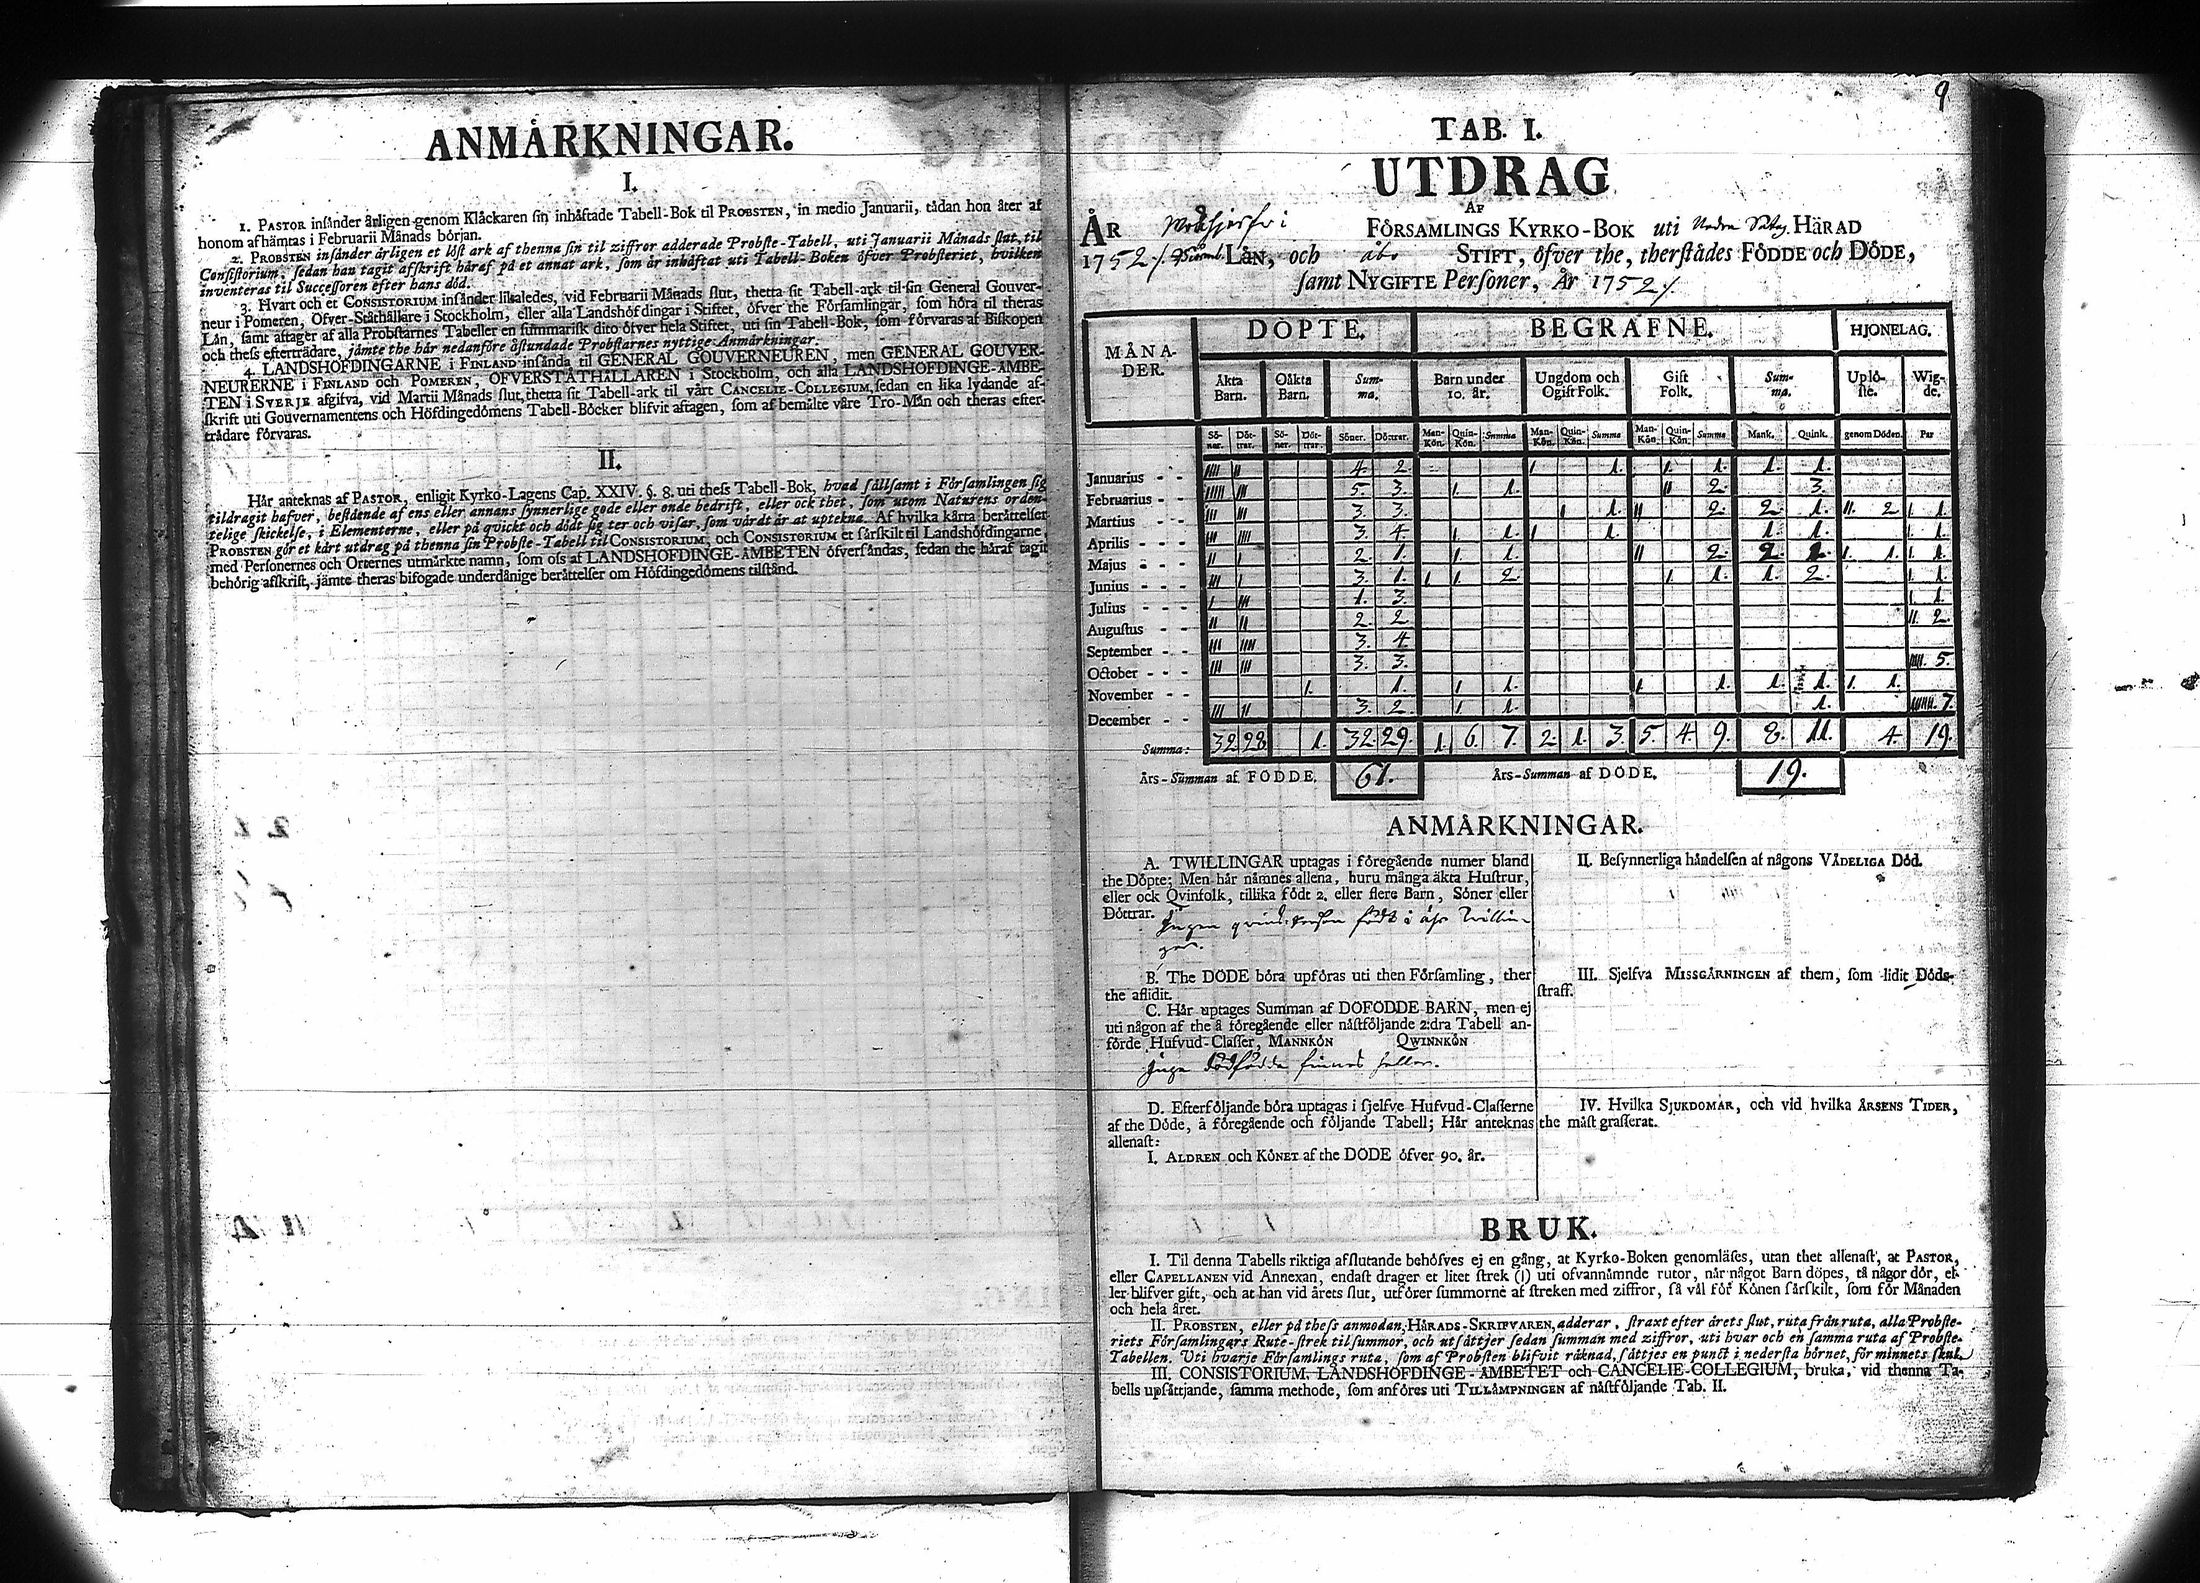 ANMÅRKNINGAR.
I.
1. PASTOR insånder årligen genom Klåckaren sin inhåftade Tabell-Bok til PROBSTEN, in medio Januarii, tådan hon åter af
honom afhämtas i Februarii Månads början.
2. PROBSTEN insånder årligen et löst ark af thenna sin til ziffror adderade Probste-Tabell, uti Januarii Månads slut, til
Consistorium, sedan han tagit afskrift håraf på et annat ark, som år inhåftat uti Tabell-Boken öfver Probsteriet, hvilken
inventeras til Successoren efter hans död.
3. Hvart och et CONSISTORIUM insånder likaledes, vid Februarii Månads slut, thetta sit Tabell-ark til sin General Gouver-
neur i Pomeren, Ofver-Ståthållare i Stockholm, eller alla Landshöfdingar i Stiftet, öfver the Församlingar, som höra til theras
Lån, samt aftager af alla Probstarnes Tabeller en summarisk dito öfver hela Stiftet, uti sin Tabell-Bok, som förvaras af Biskopen
och thess eftertrådare, jämte the hår nedanföre åstundade Probstarnes nyttige Anmårkningar.
4. LANDSHOFDINGARNE i FINLAND insånda til GENERAL GOUVERNEUREN, men GENERAL GOUVER-
NEURERNE i FINLAND och POMEREN, OFVERSTÅTHÅLLAREN i Stockholm, och alla LANDSHOFDINGE-AMBE-
TEN i SVERJE afgifva, vid Martii Månads slut, thetta sit Tabell-ark til vårt CANCELIE-COLLEGIUM, sedan en lika lydande af-
skrift uti Gouvernamentens och Höfdingedömens Tabell-Böcker blifvit aftagen, som af bemålte våre Tro-Mån och theras efter-
trådare förvaras.
II.
Hår anteknas af PASTOR, enligit Kyrko-Lagens Cap. XXIV. §. 8. uti thess Tabell-Bok, hvad sållsamt i Församlingen sig
tildragit hafver, bestående af ens eller annans synnerlige gode eller onde bedrift, eller ock thet, som utom Naturens orden-
telige skickelse, i Elementerne, eller på qvickt och dödt sig ter och visar, som vårdt år at uptekna. Af hvilka kårta beråttelser
PROBSTEN gör et kårt utdrag på thenna sin Probste-Tabell til CONSISTORIUM, och CONSISTORIUM et sårskilt til Landshöfdingarne,
med Personernes och Orternes utmårkte namn, som oss af LANDSHOFDINGE-AMBETEN öfversåndas, sedan the håraf tagit
behörig afskrift, jämte theras bifogade underdånige beråttelser om Höfdingedömens tilstånd.
9
TAB. I.
UTDRAG
AF
ÅR FÖRSAMLINGS KYRKO-BOK uti Nedre HÄRAD
1752 LÅN, och åbo STIFT, öfver the, therstådes FÖDDE och DÖDE,
samt NYGIFTE Personer, År 1752
MÅNA-
DER. DÖPTE. BEGRAFNE. HJONELAG.
Åkta Barn. Oåkta Barn. Summa. Barn under 10. år. Ungdom och Ogift Folk. Gift Folk. Summa. Uplöste. Wigde.
Söner. Döttrar. Söner. Döttrar. Söner. Döttrar. Man-Kön. Quin-Kön. Summa Man-Kön. Quin-Kön. Summa Man-Kön. Quin-Kön. Summa Mank. Quink. genom Döden. Par
Januarius - - IIII II 4. 2. 1 1. 1. 1. 1. 1.
Februarius - - IIIII III 5. 3. 1 1. II 2. 3.
Martius - - III III 3. 3. 1 1. II 2. 2. 1. II. 2 1. 1.
Aprilis - - III IIII 3. 4. 1 1. 1 1. 1. 1. 1. 1.
Majus - - II I 2. 1. 1 1. II 2. 2. 1. 1. 1. 1. 1.
Junius - - - III I 3. 1. 1 1. 2. 1. 1. 1. 2. 1. 1.
Julius - - - I III 1. 3. 1. 1.
Augustus - - II II 2. 2. II. 2.
September - - III IIII 3. 4.
October - - III III 3. 3. IIIII. 5.
November - - 1. 1. 1 1. 1. 1. 1. 1. 1. 1.
December - - III II 3. 2. 1 1. 1. IIIIIII. 7.
Summa: 32. 28 1. 32. 29. 1. 6. 7. 2. 1. 3. 5. 4. 9. 8. 11. 4. 19.
Års-Summan af FODDE. 61. Års-Summan af DÖDE. 19.
ANMÅRKNINGAR.
A. TWILLINGAR uptagas i föregående numer bland
the Döpte; Men hår nåmnes allena, huru många åkta Hustrur,
eller ock Qvinfolk, tillika födt 2. eller flere Barn, Söner eller
Döttrar.
Ingen födt i åhr Twillin-
gar.
B. The DÖDE böra upföras uti then Församling, ther
the aflidit.
C. Hår uptages Summan af DÖFÖDDE BARN, men ej
uti någon af the å föregående eller nåstföljande 2:dra Tabell an-
förde Hufvud-Classer, MANNKÖN QWINNKÖN
Inga dödfödda finnes heller.
D. Efterföljande böra uptagas i sjelfve Hufvud-Classerne
af the Döde, å föregående och följande Tabell; Hår anteknas
allenast:
I. ÅLDREN och KÖNET af the DÖDE öfver 90. år.
II. Besynnerliga håndelsen af någons VÅDELIGA Död.
III. Sjelfva MISSGÅRNINGEN af them, som lidit Döds-
straff.
IV. Hvilka SJUKDOMAR, och vid hvilka ÅRSENS TIDER,
the måst grasserat.
BRUK.
I. Til denna Tabells riktiga afslutande behöfves ej en gång, at Kyrko-Boken genomläses, utan thet allenast, at PASTOR,
eller CAPELLANEN vid Annexan, endast drager et litet strek (I) uti ofvannåmnde rutor, når något Barn döpes, tå någor dör, el-
ler blifver gift, och at han vid årets slut, utförer summorne af streken med ziffror, så vål för Könen sårskilt, som för Månaden
och hela året.
II. PROBSTEN, eller på thess anmodan, HÅRADS-SKRIFVAREN, adderar, straxt efter årets slut, ruta från ruta, alla Probste-
riets Församlingars Rute-strek til summor, och utsåttjer sedan summan med ziffror, uti hvar och en samma ruta af Probste-
Tabellen. Uti hvarje Församlings ruta, som af Probsten blifvit råknad, såttjes en punct i nedersta hörnet, för minnets skul.
III. CONSISTORIUM, LANDSHOFDINGE-AMBETET och CANCELIE-COLLEGIUM, bruka, vid thenna Ta-
bells upsåttjande, samma methode, som anföres uti TILLÅMPNINGEN af nåstföljande Tab. II.